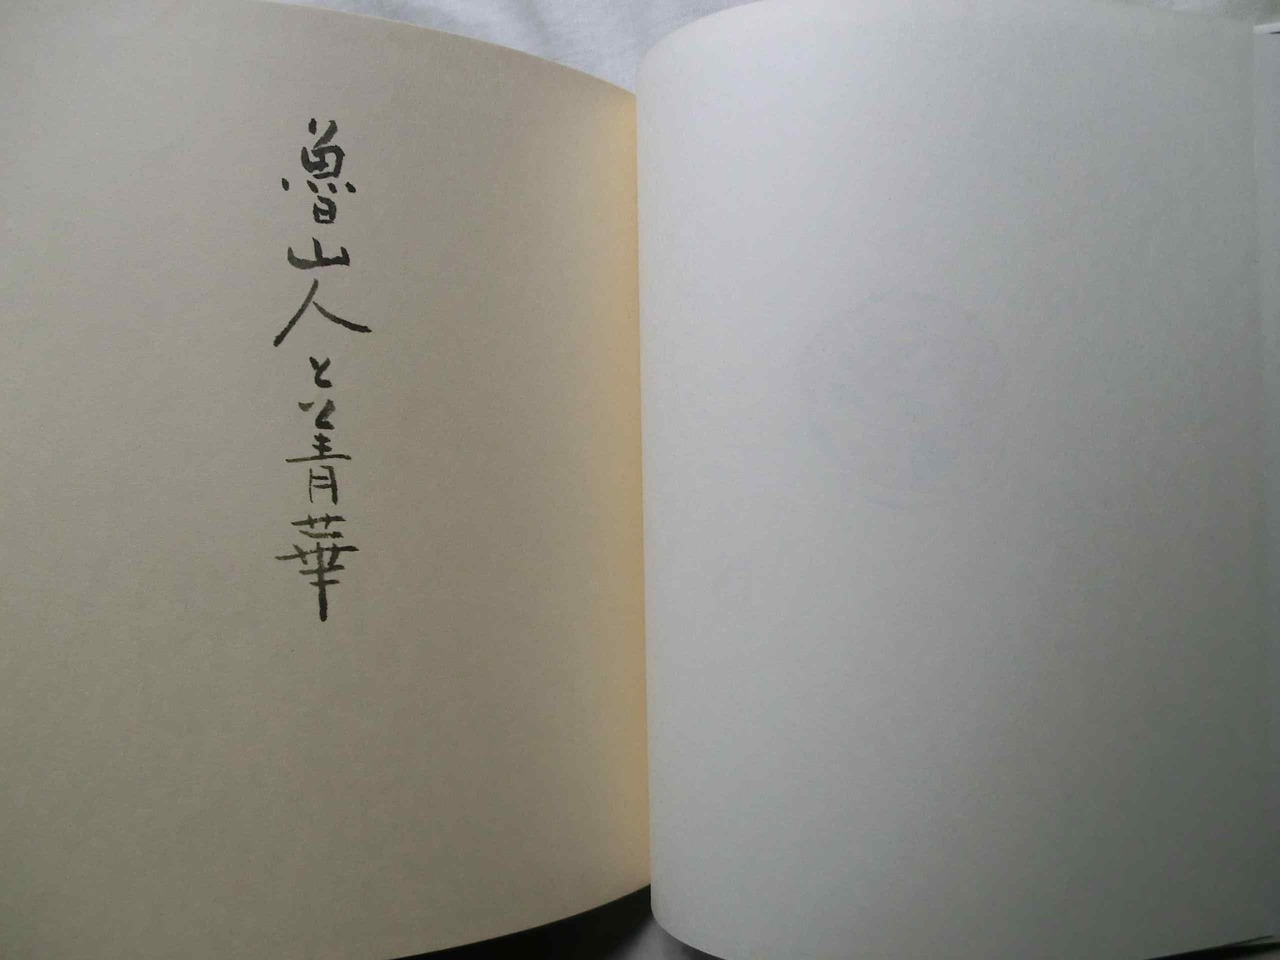 魯山人と菁華